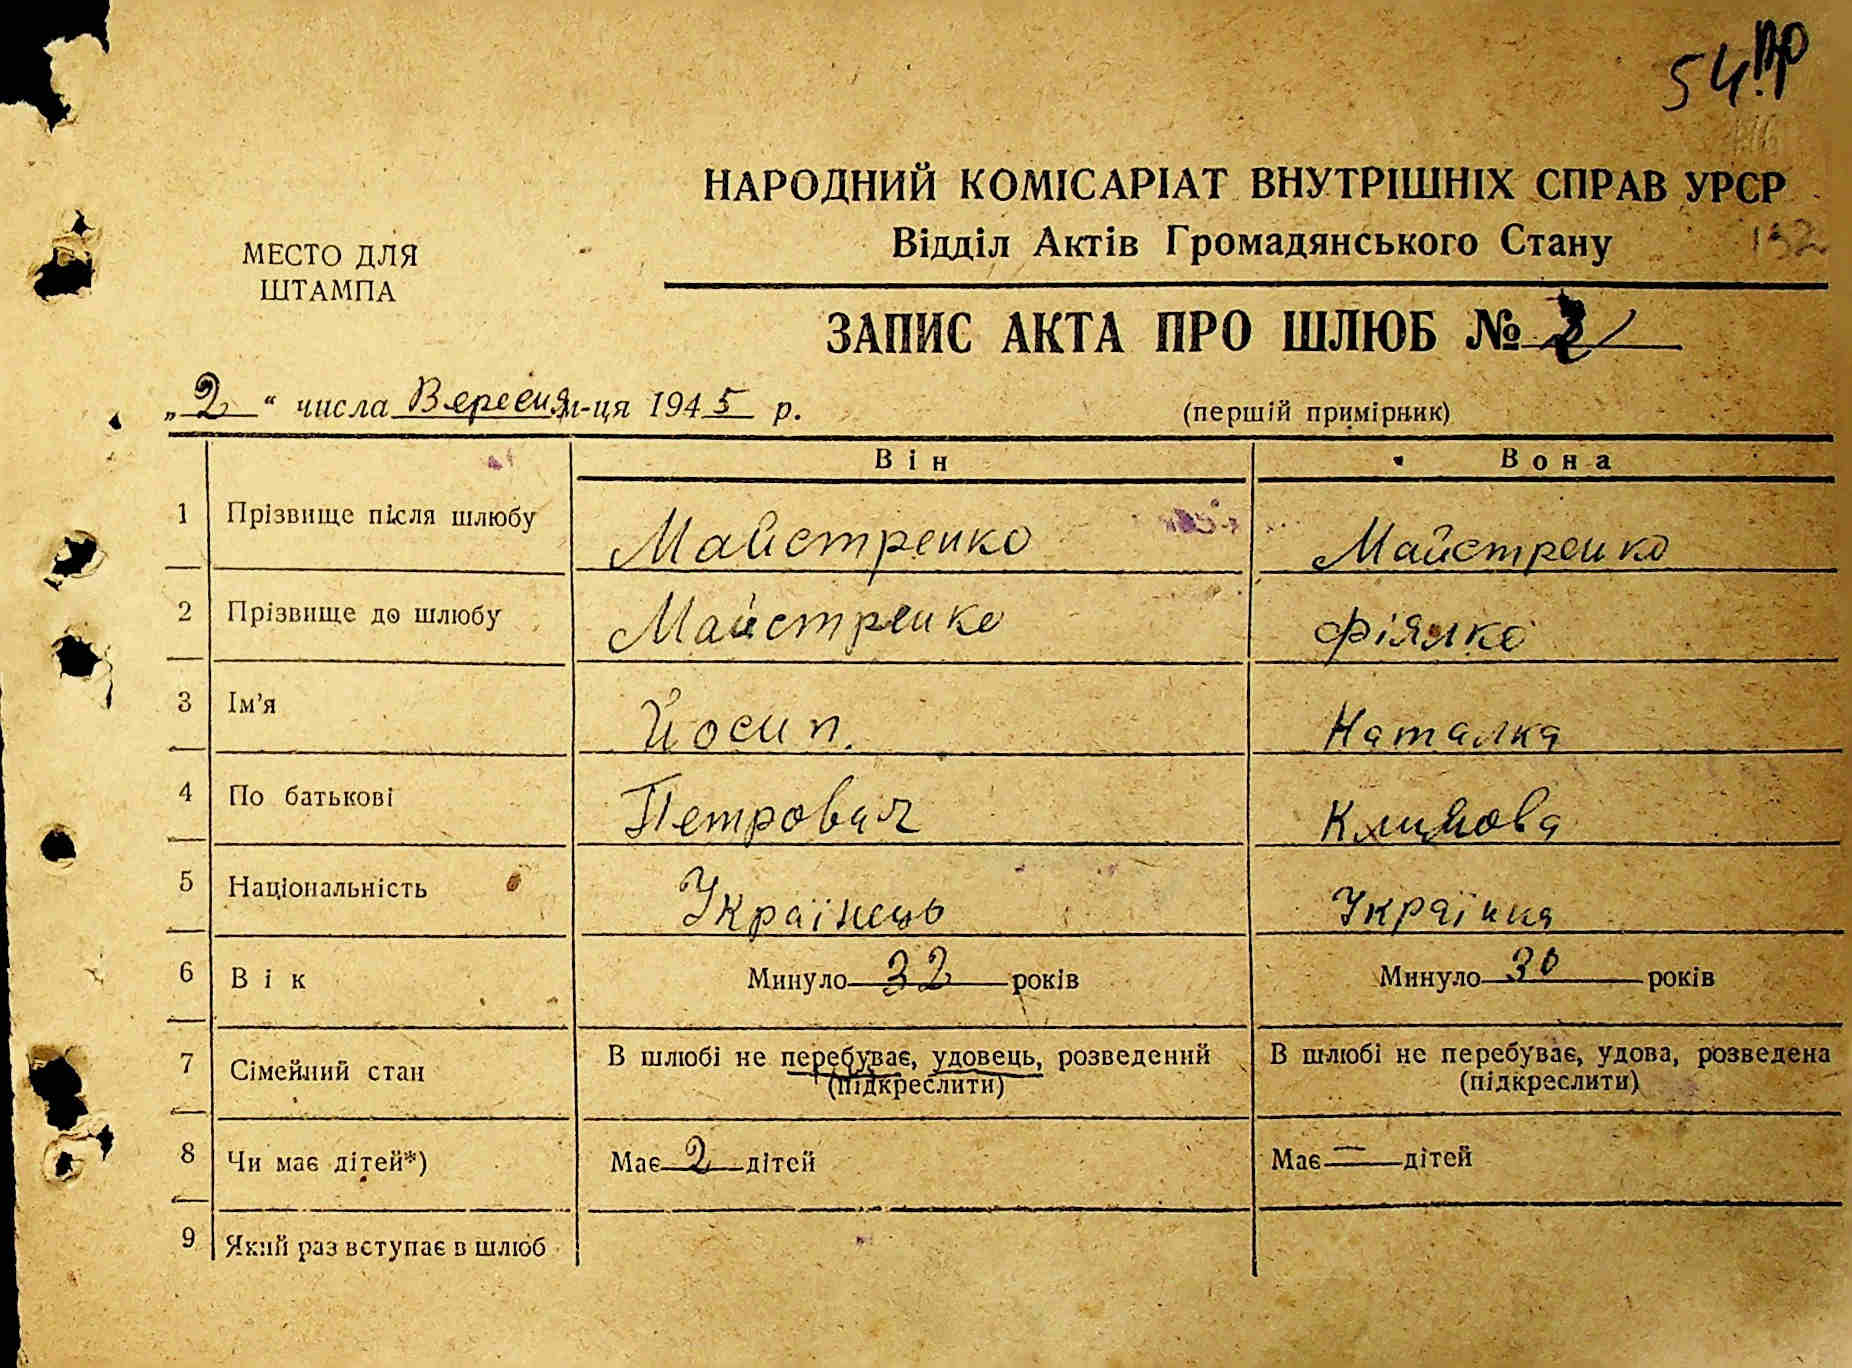 54
НАРОДНИЙ КОМІСАРІАТ ВНУТРІШНІХ СПРАВ УРСР
Відділ Актів Громадянського Стану
132
МЕСТО ДЛЯ
ШТАМПА
ЗАПИС АКТА ПРО ШЛЮБ № 2
„2“ числа Вересня м-ця 1945 р.
(першій примірник)
Він Вона
1 Прізвище після шлюбу Майстренко Майстренко
2 Прізвище до шлюбу Майстренко Фіялко
3 Ім'я Йосип. Наталка
4 По батькові Петрович Климова
5 Національність Українець Українка
6 Вік Минуло 32 років Минуло 30 років
7 Сімейний стан В шлюбі не перебуває, удовець, розведений В шлюбі не перебуває, удова, розведена
(підкреслити) (підкреслити)
8 Чи має дітей*) Має 2 дітей Має — дітей
9 Який раз вступає в шлюб